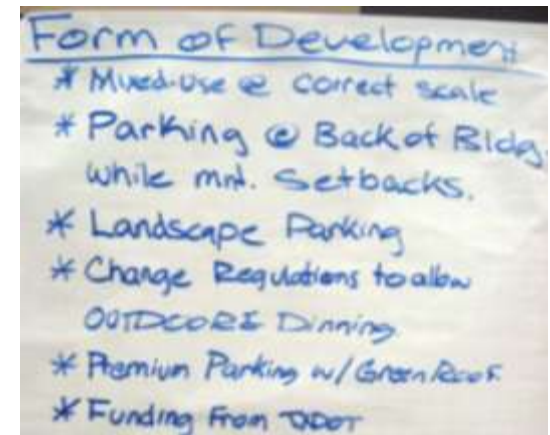 Form of Development
* Mixed-Use @ correct scale
* Parking @ Back of Bldg.
while mnt. Setbacks.
* Landscape Parking
* Change Regulations to allow
OUTDOORE Dinning
* Premium Parking w/ Green Roof
* Funding From DDOT